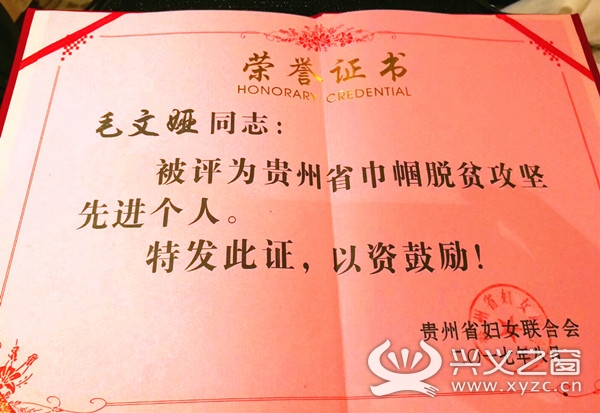 荣誉证书
HONORARY CREDENTIAL
毛文娅同志：
被评为贵州省巾帼脱贫攻坚
先进个人。
特发此证，以资鼓励！
贵州省妇女联合会
二〇一七年八月
兴义之窗
www.xyzc.cn